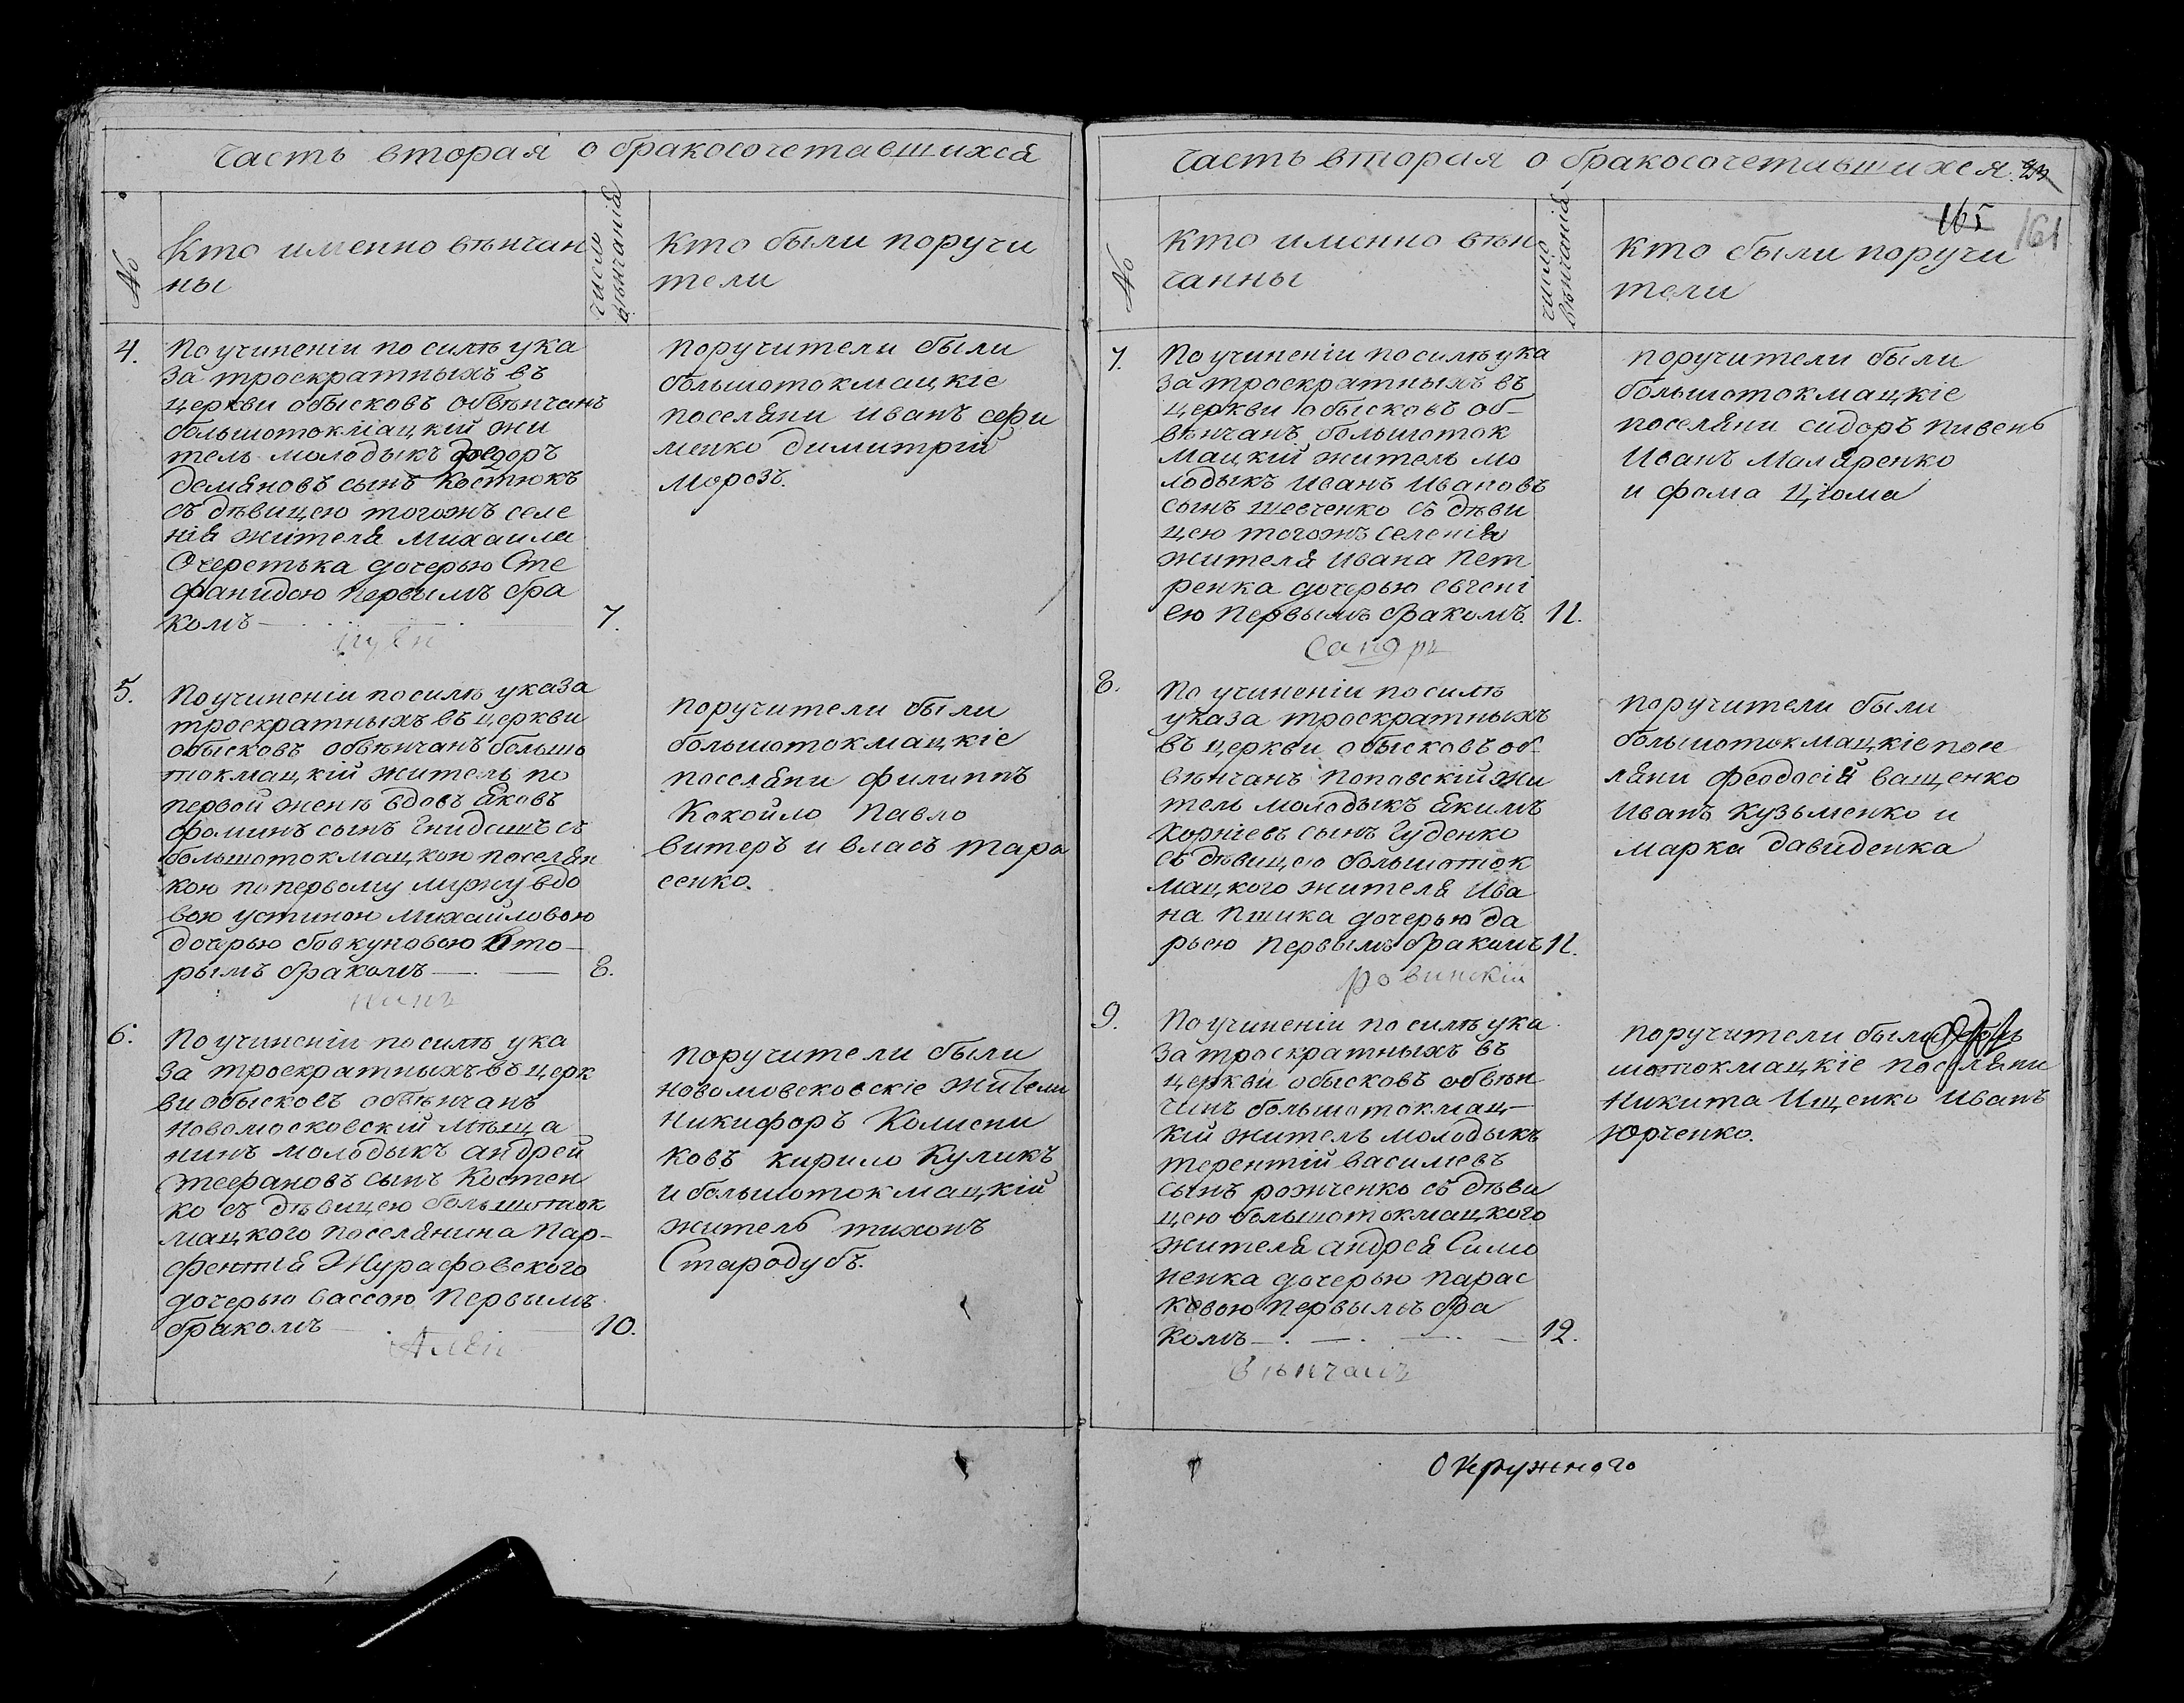 часть вторая о бракосочетавшихся
№
Кто именно вѣнчан
ны
число
вѣнчанія
Кто были поручи
тели
4.
По учиненіи по силѣ ука
за троекратныхъ въ
церкви обысковъ обвѣнчанъ
большотокмацкій жи
тель молодыкъ Федоръ
Демяновъ сынъ Костюкъ
съ дѣвицею тогожъ селе
нія жителя Михаила
Очеретька дочерью Сте
фанидою первымъ бра
комъ
7.
поручители были
большотокмацкіе
поселяни иванъ ефи
менко димитрій
морозъ.
5.
По учиненіи по силѣ указа
троекратныхъ въ церкви
обысковъ обвѣнчанъ большо
токмацкій житель по
первой женѣ вдовъ яковъ
фоминъ сынъ съ
большотокмацкою поселян
кою по первому мужу вдо
вою устиною михайловою
дочерью бовкуновою вто
рымъ бракомъ
8.
поручители были
большотокмацкіе
поселяни филиппъ
Кокойло Павло
витеръ и власъ тара
сенко.
6.
По учиненіи по силѣ ука
за троекратныхъ въ церк
ви обысковъ обвѣнчанъ
Новомосковскій мѣща
нинъ молодыкъ андрей
Стефановъ сынъ Костен
ко съ дѣвицею большоток
мацкого поселянина Пар-
фентія Журафовского
дочерью вассою первымъ
бракомъ
10.
поручители были
новомосковскіе жители
никифоръ Колисни
ковъ кирило Куликъ
и большотокмацкій
житель тихонъ
Стародубъ.
часть вторая о бракосочетавшихся
165
161
№
Кто именно вѣн
чанны
число
вѣнчанія
Кто были поручи
тели
7.
По учиненіи по силѣ ука
за троекратныхъ въ
церкви обысковъ об-
вѣнчанъ большоток
мацкій житель мо
лодыкъ иванъ ивановъ
сынъ шевченко съ дѣви
цею тогожъ селенія
жителя ивана Пет
ренка дочерью евгені
ею первымъ бракомъ.
11.
поручители были
большотокмацкіе
поселяни сидоръ пивень
Иванъ Моляренко
и фома Цюма
8.
По учиненіи по силѣ
указа троекратныхъ
въ церкви обысковъ об-
вѣнчанъ поповскій жи
тель молодыкъ якимъ
Корніевъ сынъ Гуденко
съ дѣвицею большоток
мацкого жителя Ива
на Пшика дочерью да
рьею первымъ бракомъ
11.
ровинскій
поручители были
большотокмацкіе посе
ляни феодосій ващенко
иванъ Кузьменко и
марка давиденка
9.
По учиненіи по силѣ ука
за троекратныхъ въ
церкви обысковъ обвѣн
чанъ большотокмац-
кій житель молодыкъ
терентій василиевъ
сынъ рожченко съ дѣви
цею большотокмацкого
жителя андрея Симо
ненка дочерью парас
ковою первымъ бра
комъ
12.
вѣнчалъ
поручители были боль
шотокмацкіе поселяни
Никита Ищенко иванъ
Юрченко.
Окружного